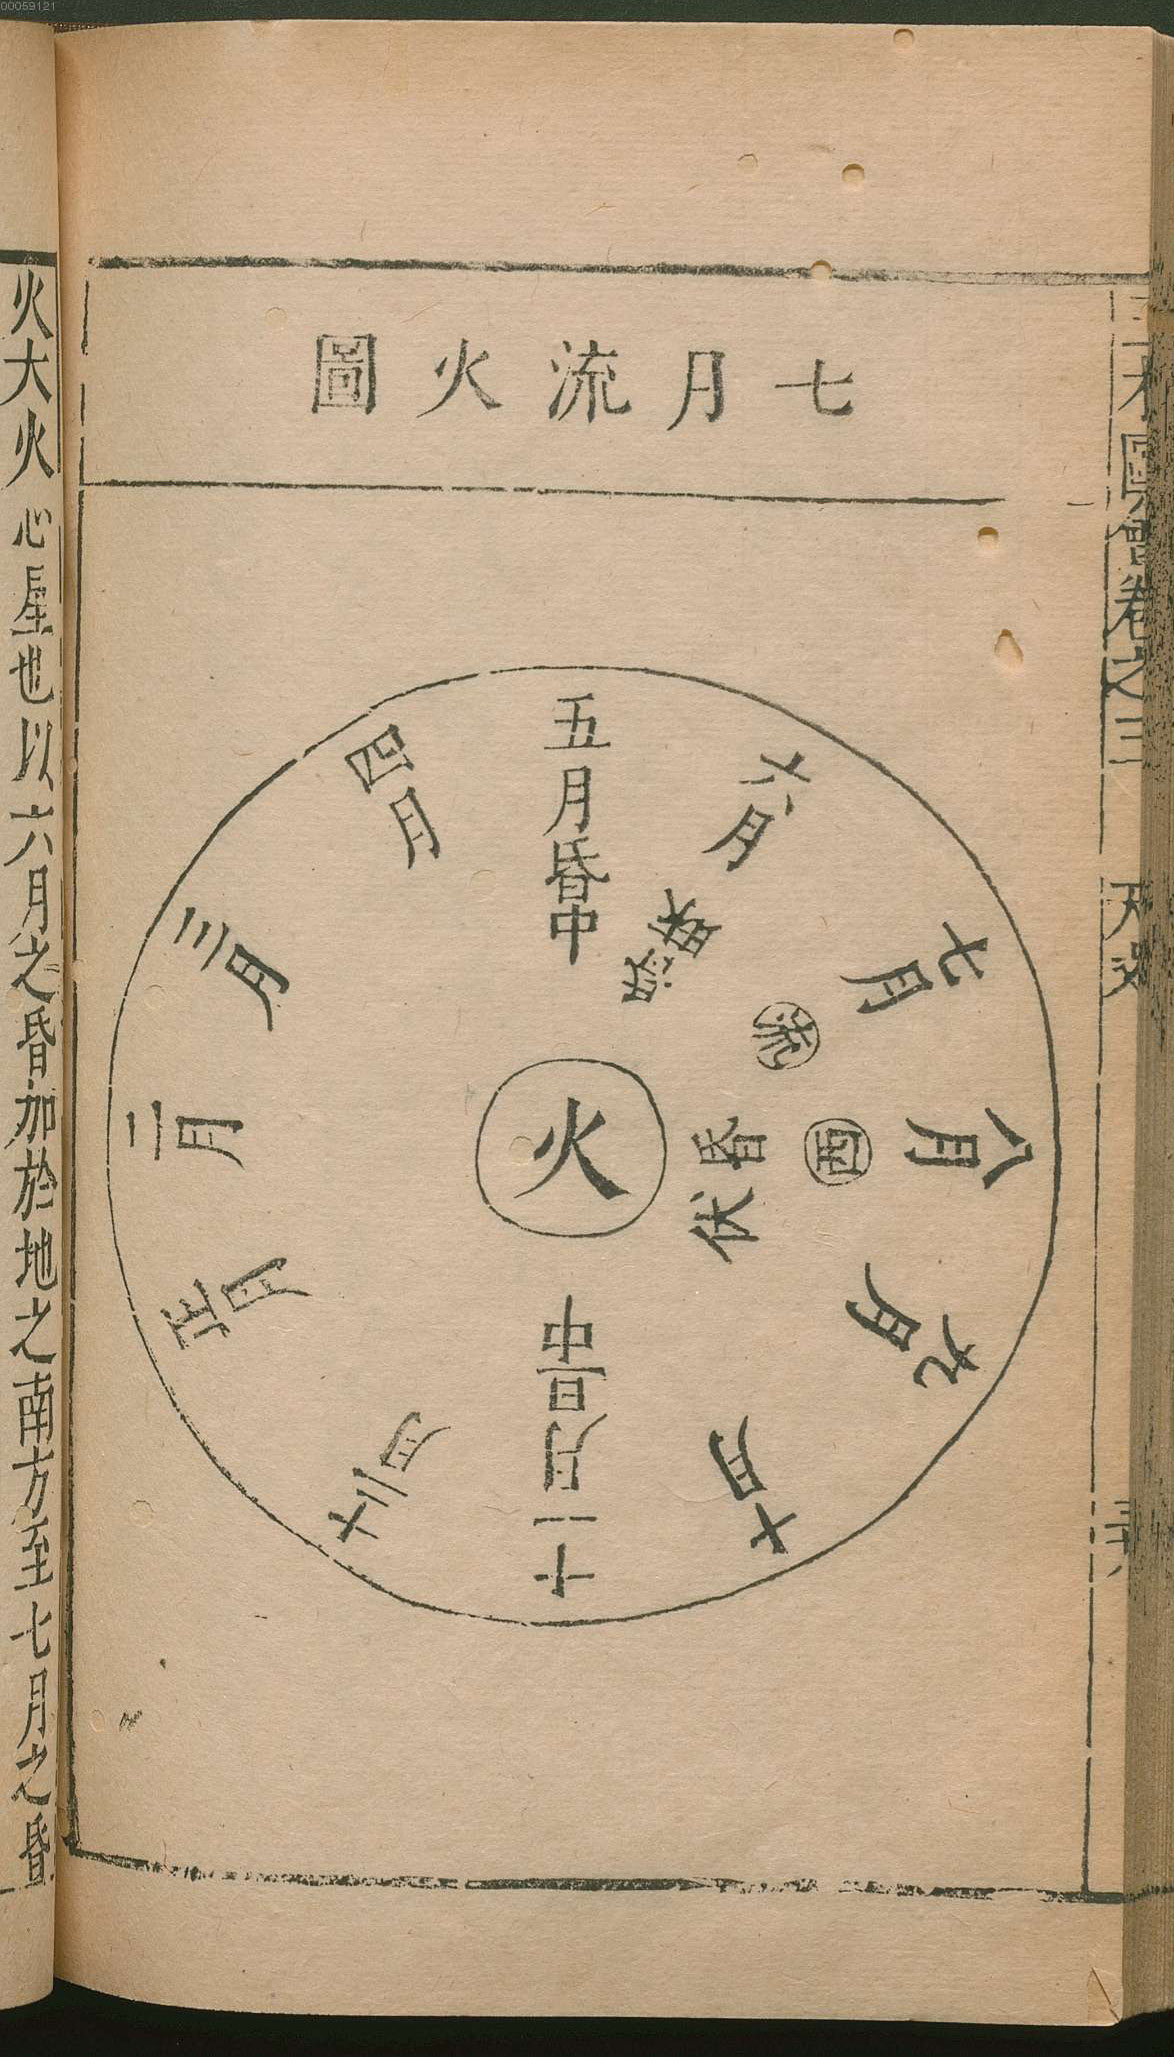 00059121
七月流火圖
五月昏中
六月
七月
流
八月
酉
昏伏
九月
十月
十一月旦中
十二月
正月
二月
三月
四月
火
圖會卷之三
天文
火大火心星也以六月之昏加於地之南方至七月之昏